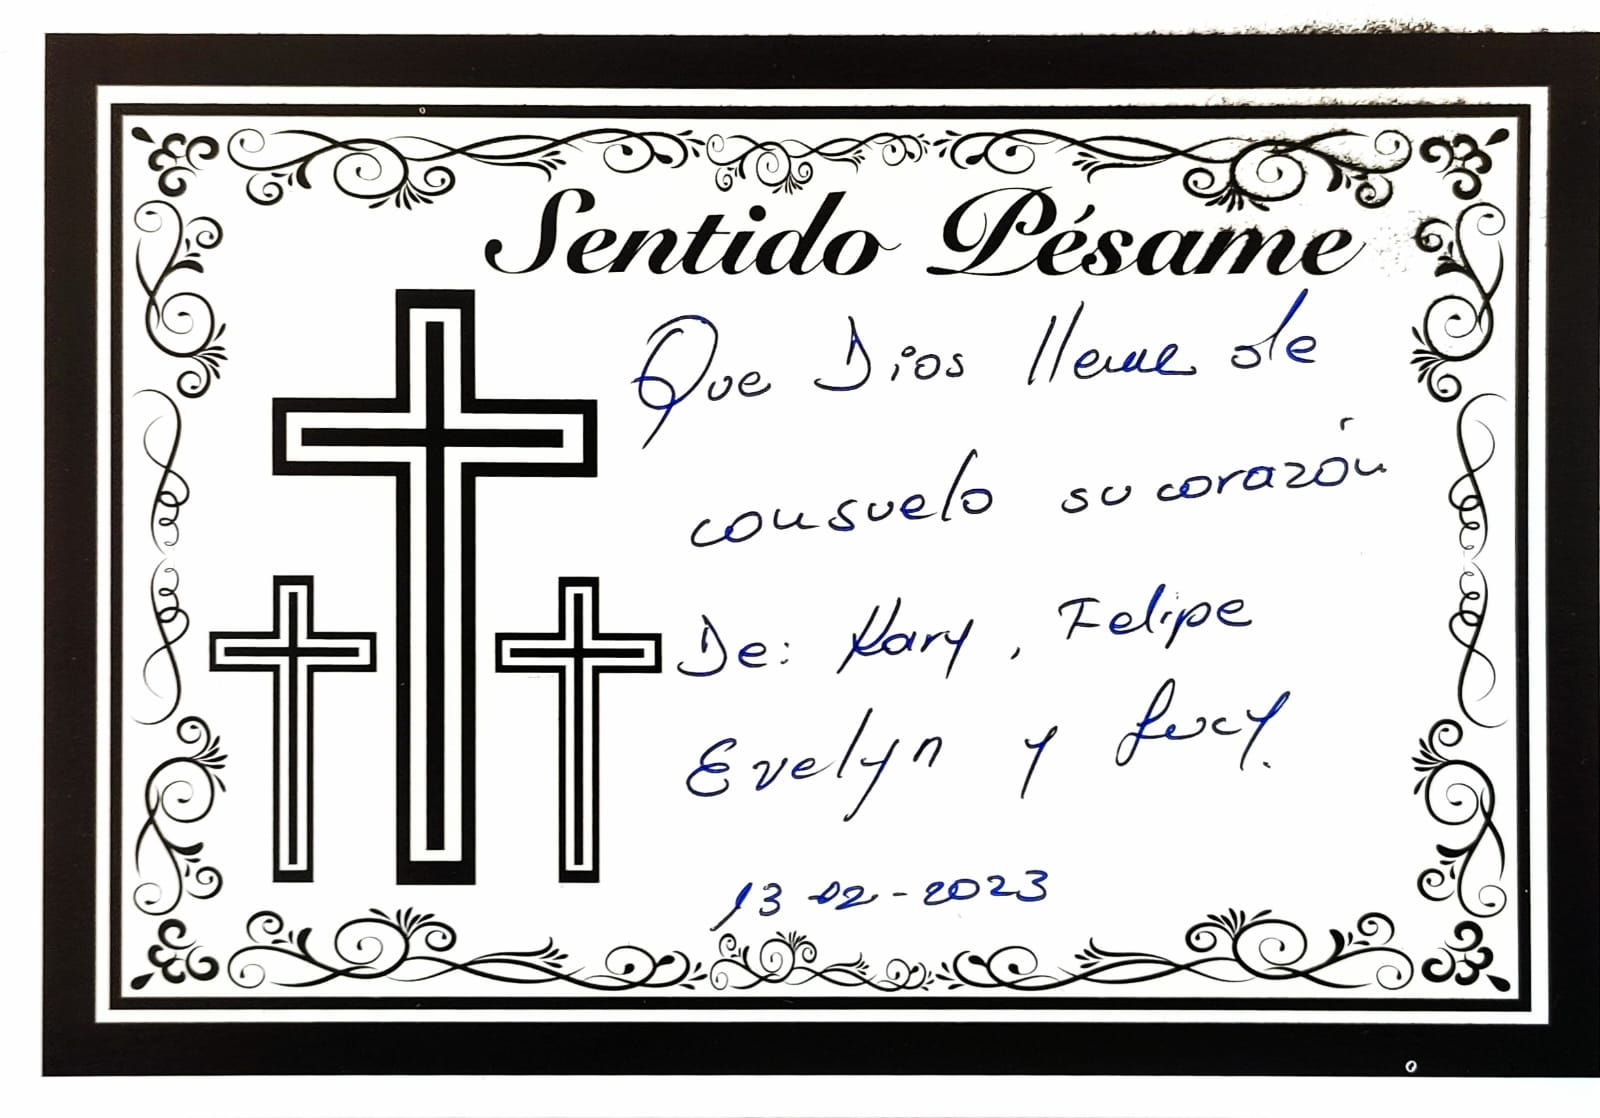 Sentido Pésame
Que Dios llene de
consuelo su corazón
De: Kary, Felipe
Evelyn y Lucy.
13-02-2023